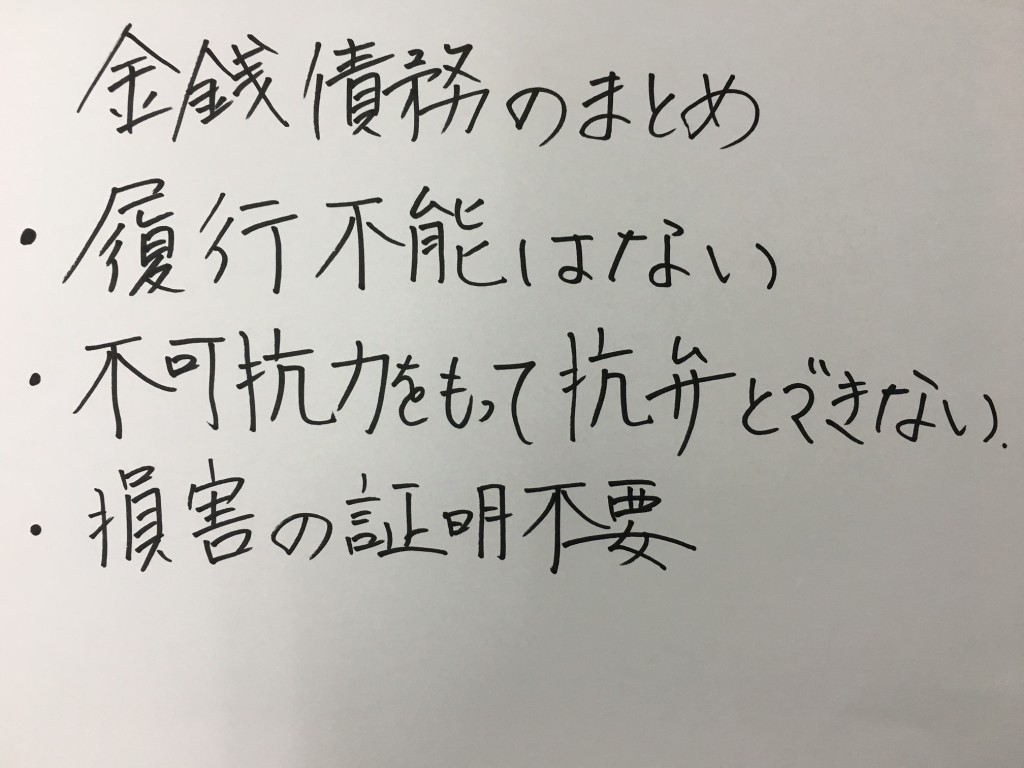 金銭債務のまとめ
・履行不能はない
・不可抗力をもって抗弁とできない.
・損害の証明不要